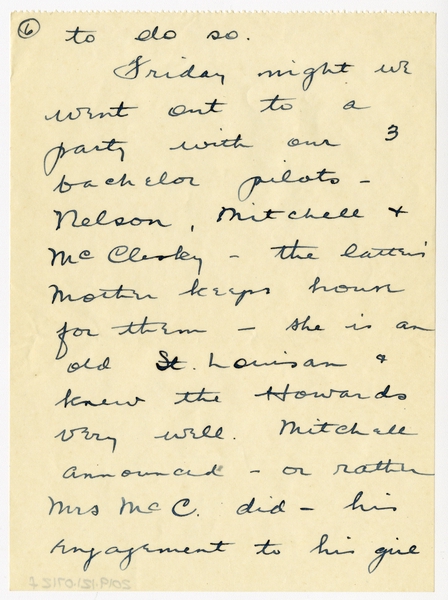 6
to do so.
Friday night we
went out to a
party with our 3
bachelor pilots -
Nelson, Mitchell +
McClesky - the latter's
Mother keeps house
for them - she is an
old St. Louisan &
knew the Howards
very well. Mitchell
announced - or rather
Mrs McC. did - his
engagement to his girl
2019.121.0172 f